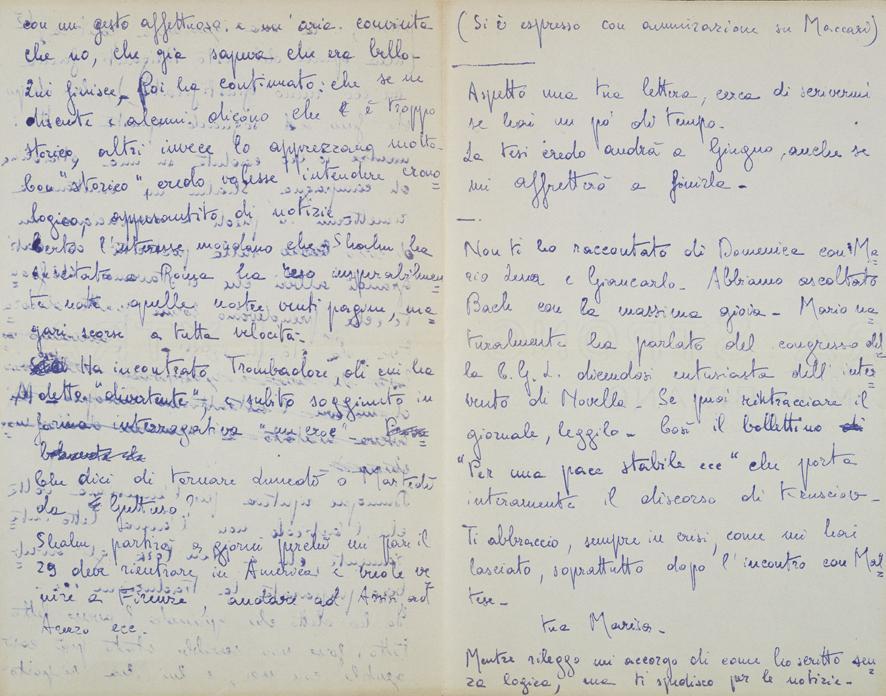 con un gesto affettuoso e un'aria convinta
che no, che già sapeva che era bello-
Qui finisce. Poi ha continuato: che se ne
discute e alcuni dicono che è troppo
storico, altri invece lo apprezzano molto-
con "storico" credo volesse intendere crono=
logico, appesantito di notizie.
Certo l'interesse mondano che Shahn ha
suscitato a Roma ha reso insperabilmen=
te note quelle nostre venti pagine, ma=
gari scorse a tutta velocità-
Ha incontrato Trombadori, di cui ha
detto "divertente" - e subito soggiunto in
forma interrogativa "un eroe" -
Che dici di tornare Lunedì o Martedì
da Guttuso?
Shahn partirà a giorni perché mi pare il
29 deve rientrare in America e vuole ve=
nire a Firenze andare ad Assisi ad
Arezzo ecc.
(Si è espresso con ammirazione su Maccari)
Aspetto una tua lettera, cerca di scrivermi
se hai un po' di tempo-
La tesi credo andrà a Giugno, anche se
mi affretterò a finirla -
Non ti ho raccontato di Domenica con Ma=
rio Lena e Giancarlo. Abbiamo ascoltato
Bach con la massima gioia - Mario na=
turalmente ha parlato del congresso del=
la C.G.L. dicendosi entusiasta dell'inter=
vento di Novella - Se puoi rintracciare il
giornale, leggilo - Così il bollettino
"Per una pace stabile ecc" che porta
interamente il discorso di Krusciov-
Ti abbraccio, sempre in crisi, come mi hai
lasciato, soprattutto dopo l'incontro con Mal=
tese-
tua Marisa-
Mentre rileggo mi accorgo di come ho scritto sen=
za logica, ma ti spedisco per le notizie-